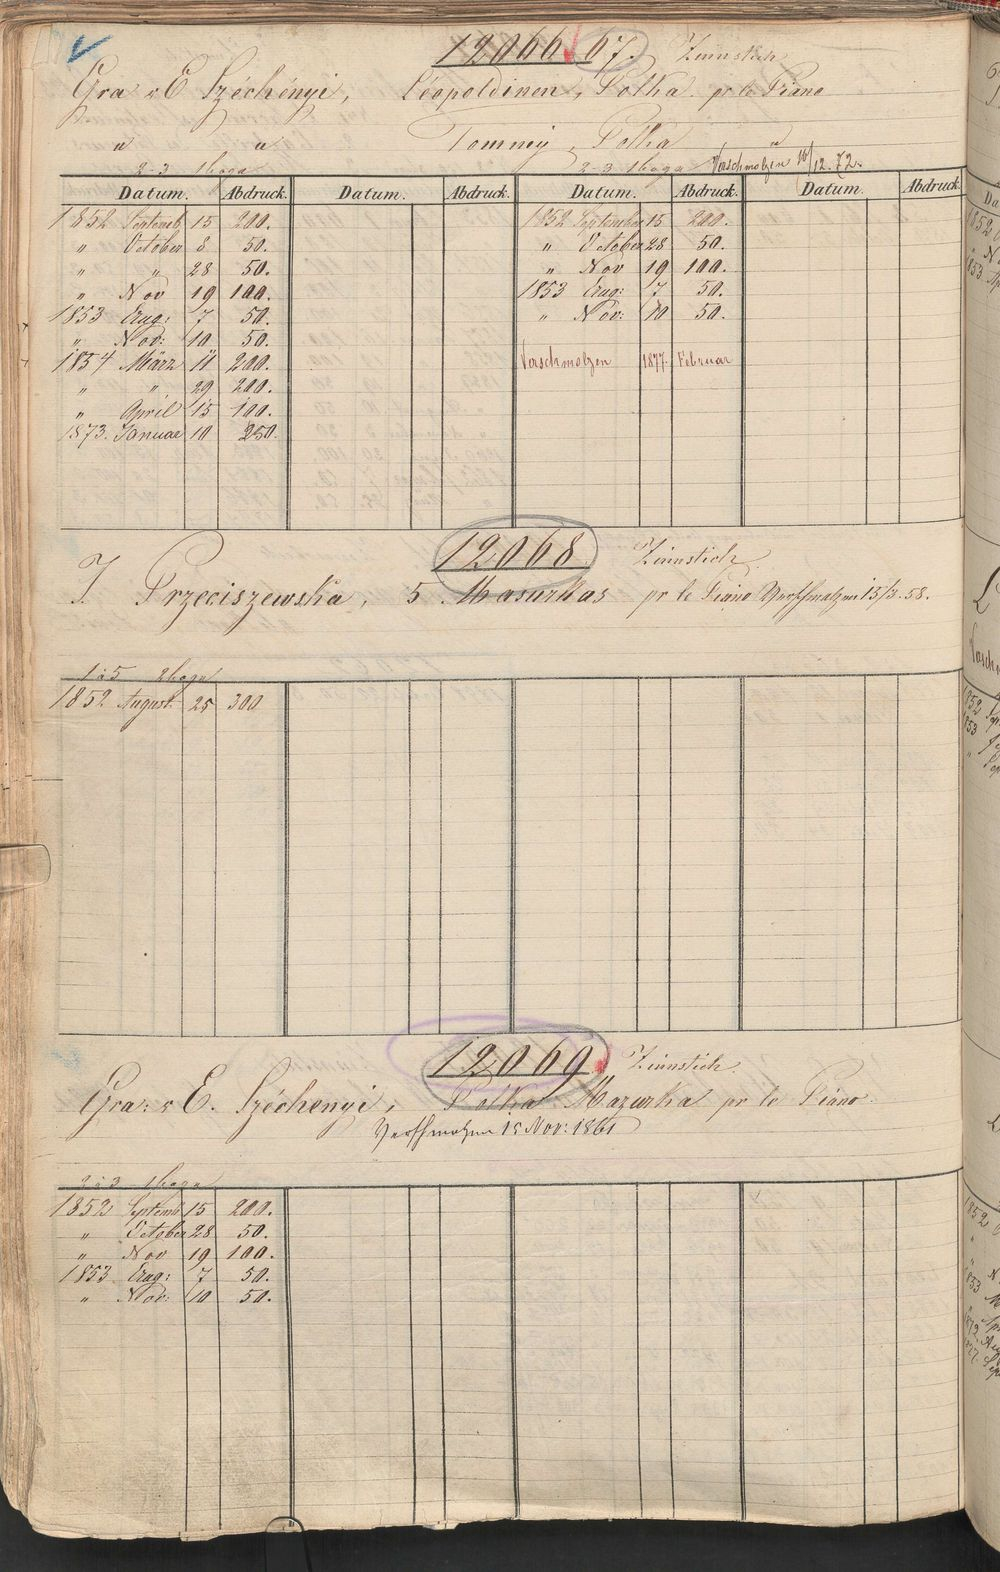 12066 67. Zinnstich
Gra v E Széchényi, Léopoldinen, Polka pr le Piano
" " Tommy, Polka "
2-3 1boga 2-3 1boga Verschmolzen 16/12.72.
Datum. Abdruck. Datum. Abdruck. Datum. Abdruck. Datum. Abdruck.
1852 Septemb 15 200. 1852 September 15 200.
" October 8 50. " October 28 50.
" " 28 50. " Nov 19 100.
" Nov 19 100. 1853 Aug: 7 50.
1853 Aug: 7 50. " Nov: 10 50.
" Nov: 10 50.
1854 März 11 200. Verschmolzen 1877. Februar
" " 29 200.
" April 15 100.
1873. Januar 10 250.
12068 Zinnstich
J. Przeciszewska, 5 Masurkas pr le Piano Verschmolzen 15/3.58.
1à5 2boga
1852 August 25 300
12069 Zinnstich
Gra: v E. Széchenyi, Polka Mazurka pr le Piano
Verschmolzen 15 Nov: 1861
2à3 1boga
1852 Septemb 15 200.
" October 28 50.
" Nov 19 100.
1853 Aug: 7 50.
" Nov: 10 50.